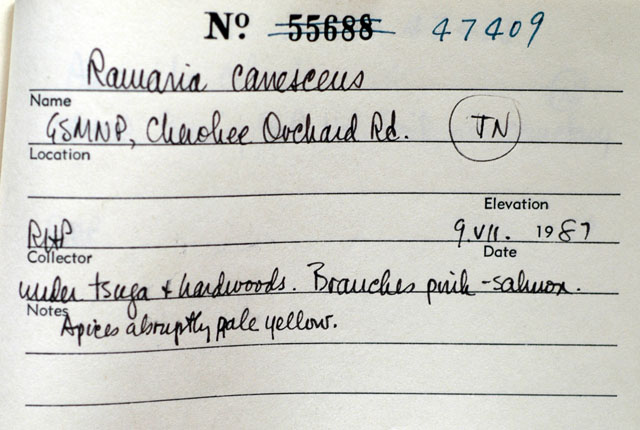 Nº 55688 47409
Ramaria canescens
Name
GSMNP, Cherokee Orchard Rd. TN
Location
Elevation
RHP 9.VII. 1987
Collector Date
under tsuga + hardwoods. Branches pink-salmon.
Notes
Apices abruptly pale yellow.